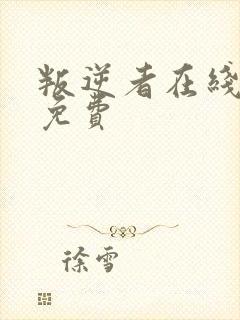 叛逆者在线
免費
徐雪